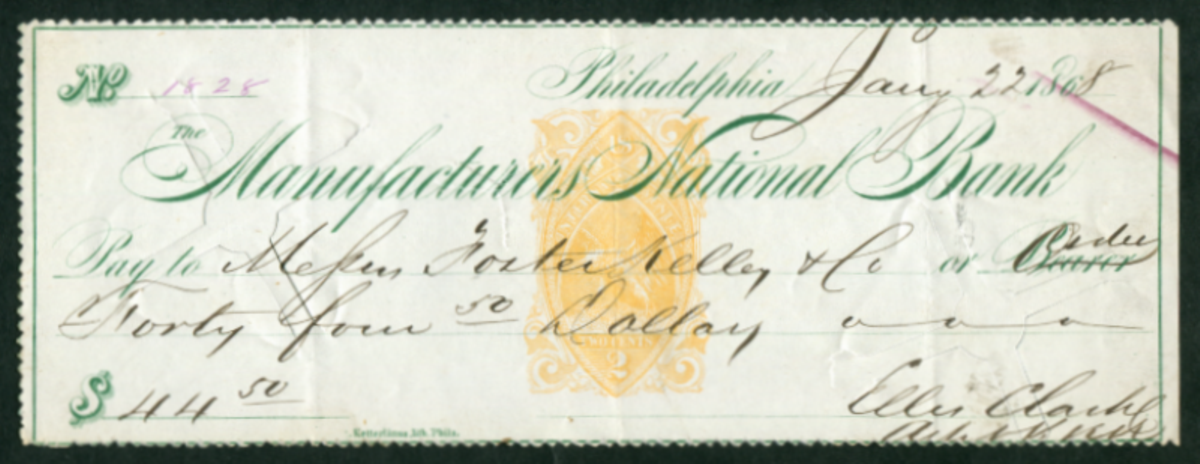 No. 1828 Philadelphia Jany 22 1868
The
Manufacturers National Bank
Pay to Messrs Foster Kelley & Co or Order
Forty four 50 Dollars
TWO CENTS
2
$ 44 50
Ellis Clarke
Ketterlinus Lith. Phila.